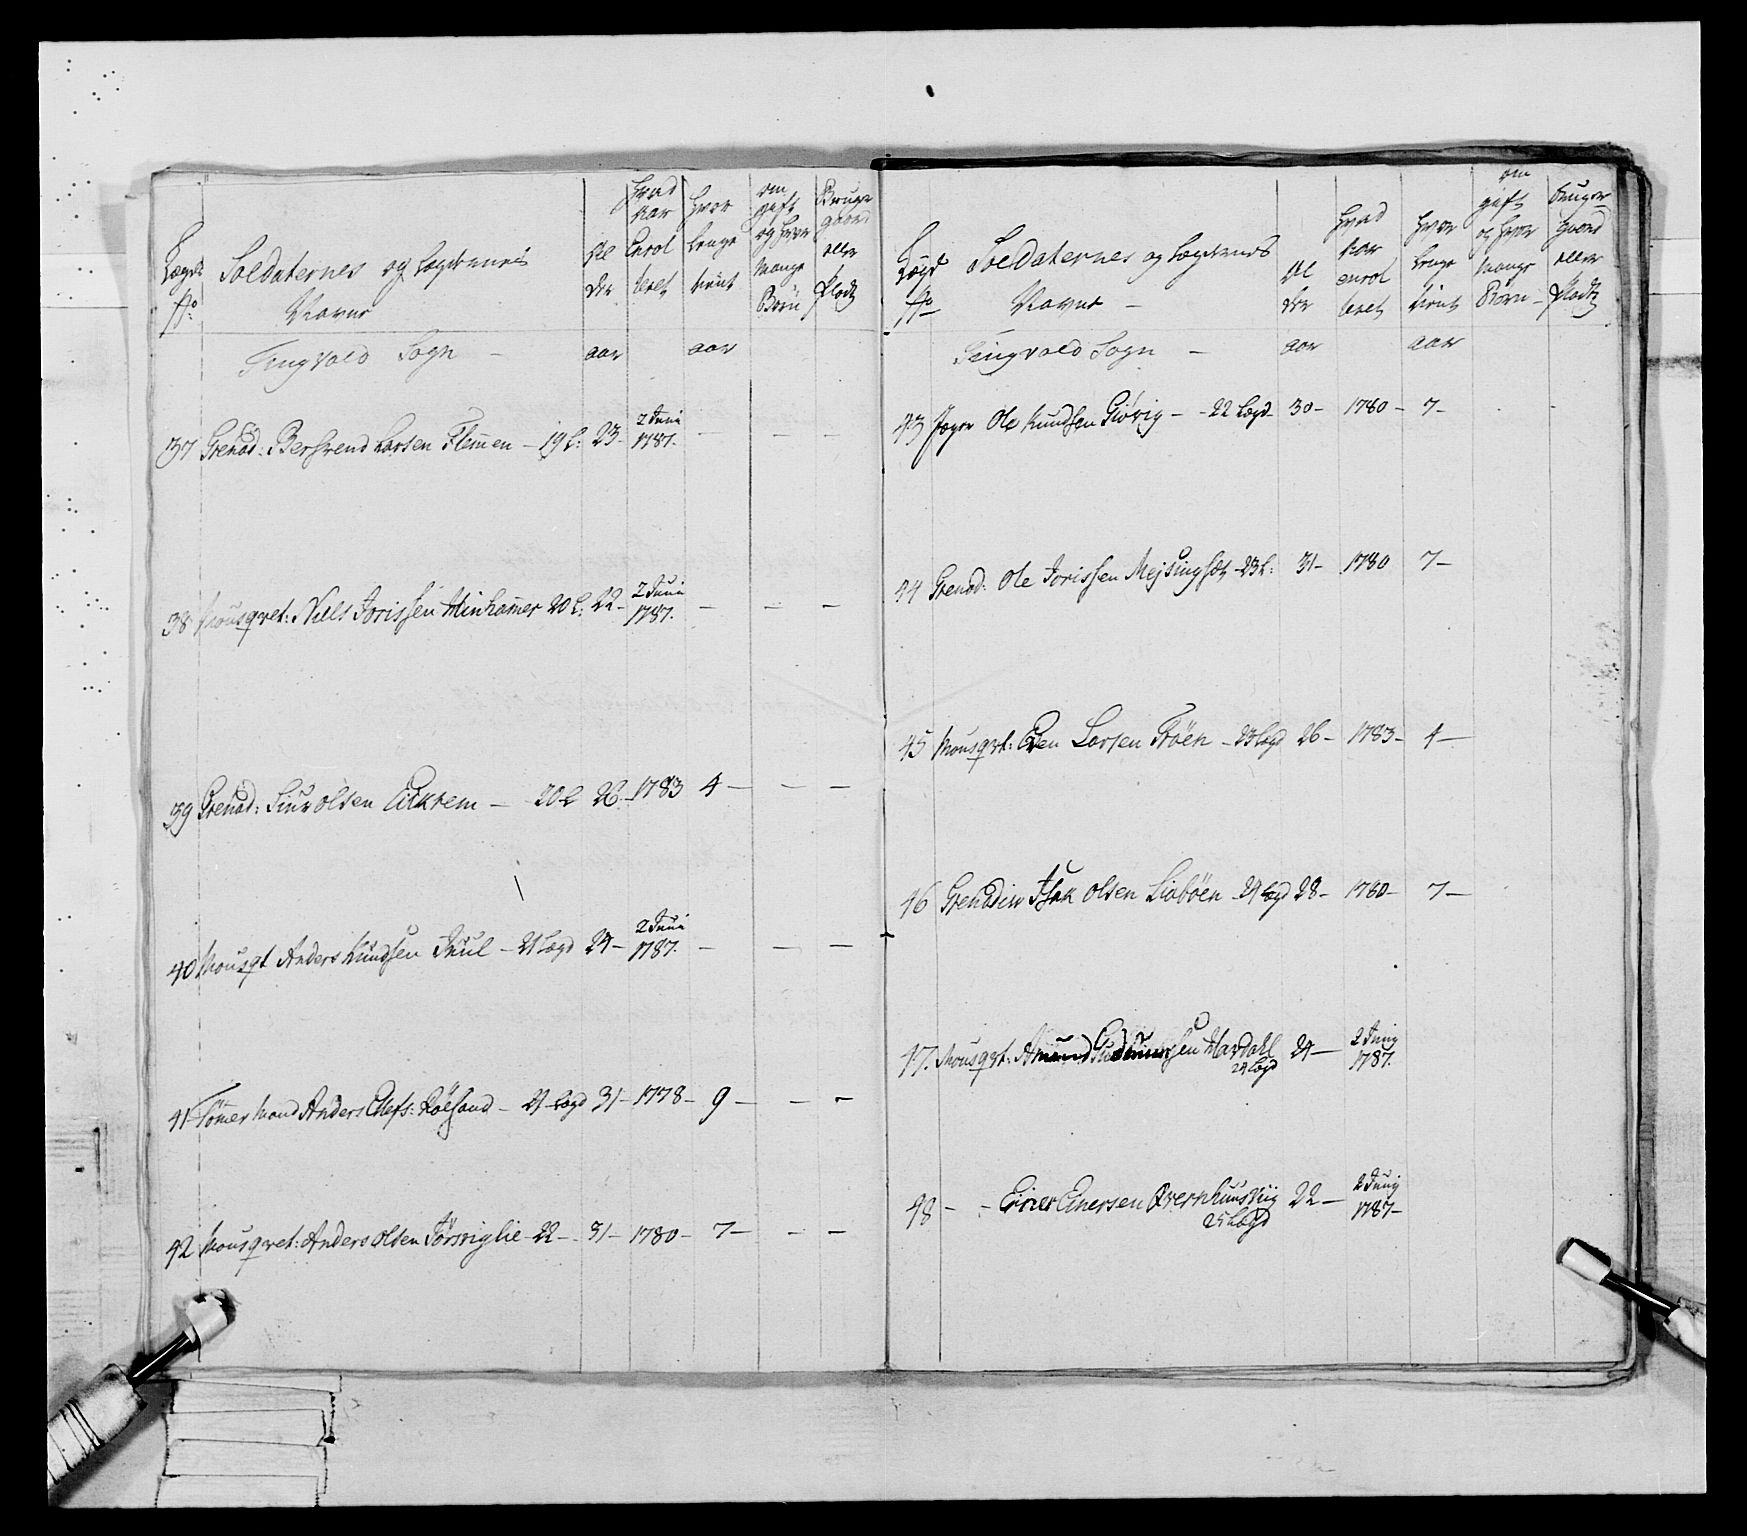 Lægds No: Soldaternes og Lægdernes Navne
Al der
hvad Aar Enrol leret
hvor lenge tient
om gift og hvor mange Børn
Bruger gaard eller Pladtz
Tingvold Sogn – aar aar
37 Grenad: Larsen Flemmen – 19 L: 23– 2 Juni 1787. – – –
38 Mousqvet: Niels Jorissen Minhamer 20 L: 22– 2 Juni 1787. – – –
39 Grenad: Siur Olsen Eikrem – 20 L 26 – 1783 4 – – –
40 Mousqt Anders Knudsen Juul – 21 Lægd 24 – 2 Juni 1787. – – –
41 Tømermand Anders Røesand – 21 Lægd 31 – 1778 – 9 – – –
42 Mousqvet: Anders Olsen – 22 – 31 – 1780 – 7 – – –
Lægd No Soldaternes og Lægdernes Navne –
Al der
hvad Aar enrol leret
hvor lenge tient
om gift og hvor mange Børn –
Bruger gaard eller Pladtz
Tingvold Sogn – aar aar
43 Jæger Ole Knudsen Giøvig – – 22 Lægd – 30 – 1780 – 7 –
44 Grenad: Ole Jorissen Mejsingset – 23 L: 31 – 1780 7 –
45 Mousqvt: Even Larsen – 23 Lægd 26 – 1783 – 4 –
46 Grenadier Isak Olsen Liabøen – 24 Lægd 28 – 1780 – 7 –
47. Mousqvt: Amund Gudmunsen Hardahl 24 – 2 Junij 1787.
24 Lægd
48 – – Einer Einersen 22 – 2 Junij 1787 –
25 Lægd